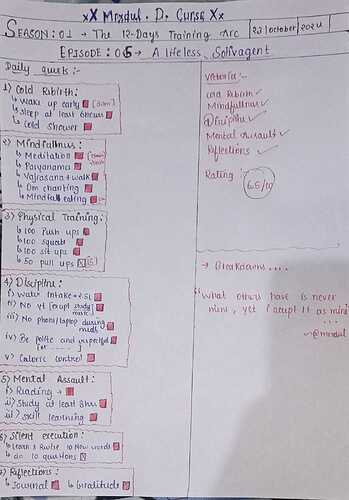 xX Mrxdul . D. Curse Xx
SEASON: 01 → The 12-Days Training Arc
23 | October | 2024
EPISODE: 05 → A lifeless, Solivagent
Daily quests :-
1) Cold Rebirth:
↳ Wake up early
↳ Sleep at least 6hours
↳ Cold shower
2) Mindfullnus:
↳ Meditation
↳ Paryanama
↳ Vajrasana + walk
↳ Om chanting
↳ Mindfull eating
3) Physical Training:
↳ 100 Push ups
↳ 100 squats
↳ 100 sit ups
↳ 50 pull ups
4) Discipline:
i) Water Intake + 2.5L
ii) No yt (except study)
iii) No phone/laptop during meals
iv) Be polite and respectful
v) Caloric control
5) Mental Assault:
i) Reading →
ii) Study at least 8hrs
iii) skill learning
6) Silent execution:
↳ Learn & Revise 10 New words
↳ do 10 questions
7) Reflections:
↳ Journal ↳ Gratitude
Victories :-
Cold Rebirth ✓
Mindfullnus ✓
Discipline ✓
Mental Assault ✓
Reflections ✓
Rating :-
6.5/10
→ Breakdowns ....
"What others have is never
mine, yet I accept it as mine"
...
~@mrxdul